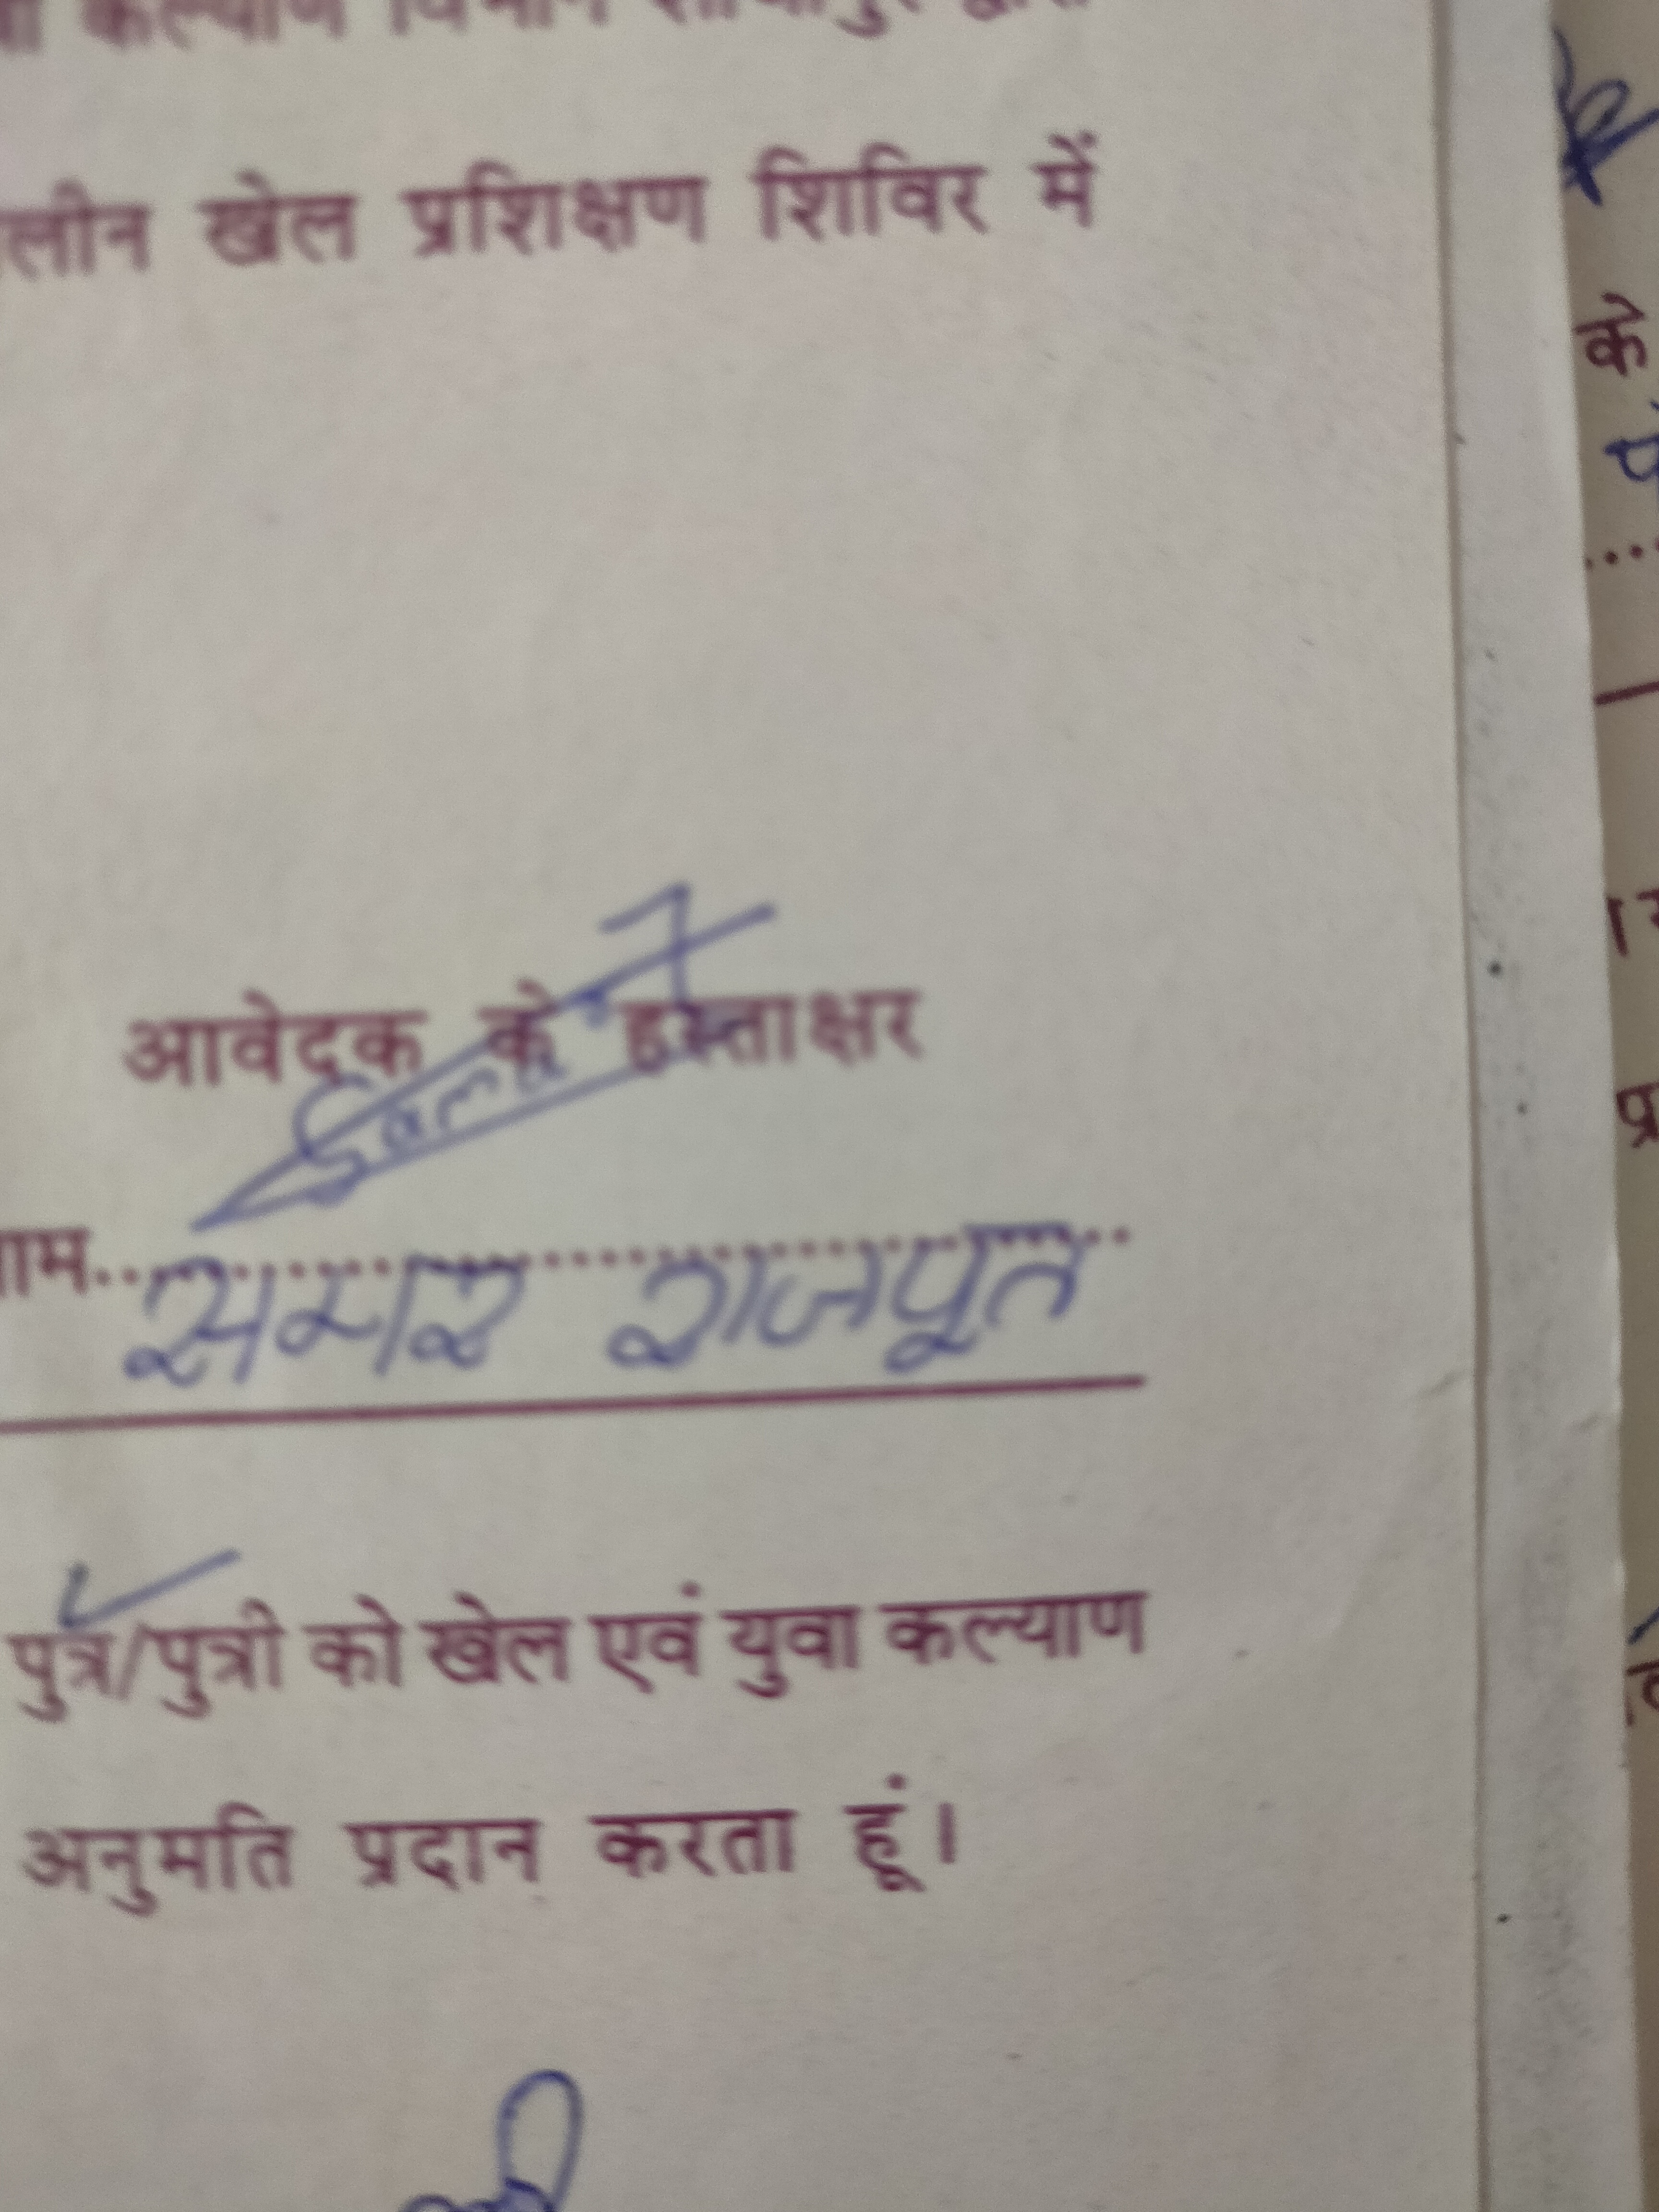 कल्याण विभाग
लीन खेल प्रशिक्षण शिविर में
आवेदक के हस्ताक्षर
नाम..........
समर राजपूत
पुत्र/पुत्री को खेल एवं युवा कल्याण
अनुमति प्रदान करता हूं।
के